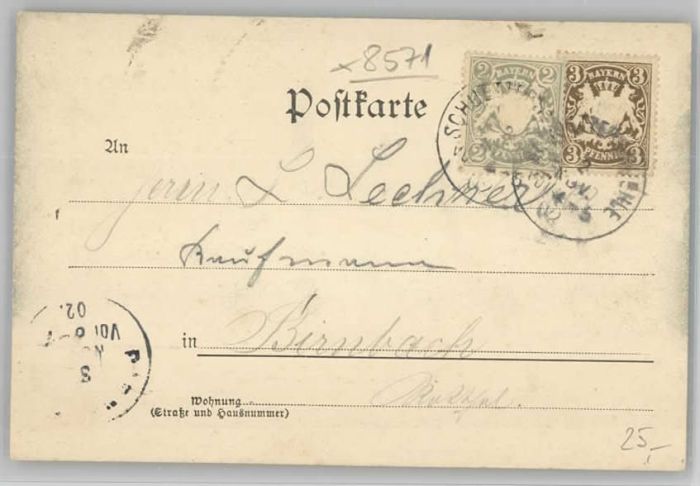 x8571
2 BAYERN 2 3 BAYERN 3
2 2 3 PFENNIG 3
Postkarte
SCHU
An
Herrn L. Lechner
Kaufmann
02.
VOR
in Birnbach
Wohnung
(Straße und Hausnummer)
25,-